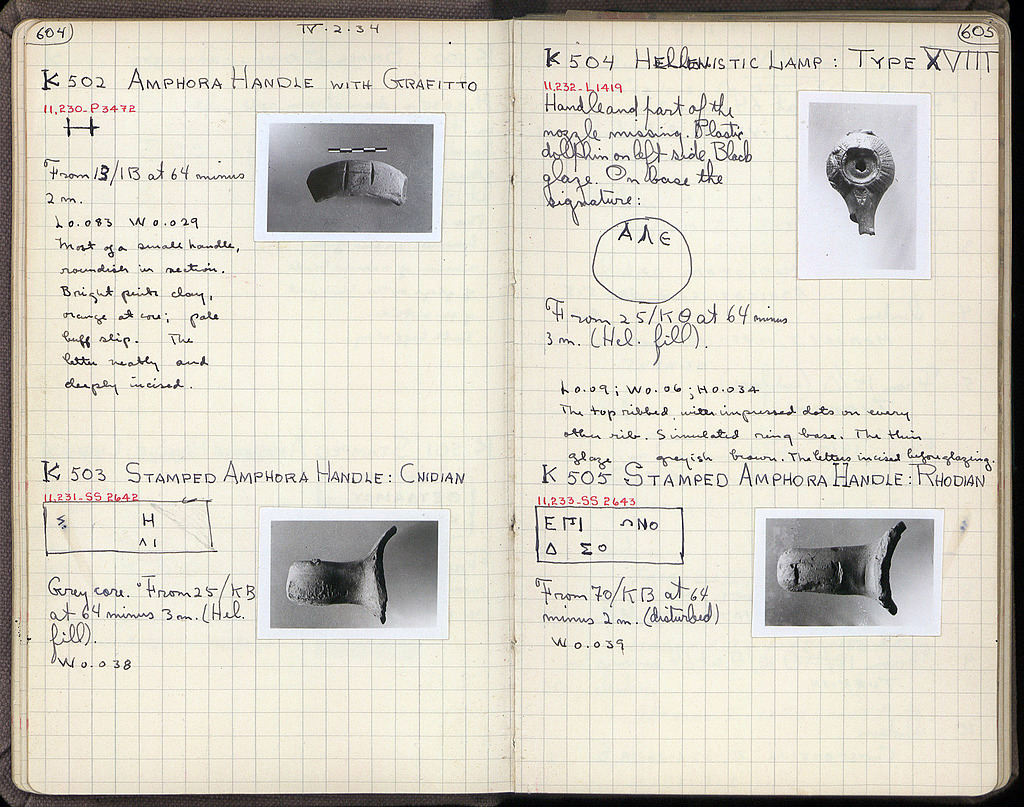 604
IV·2·34
K 502 AMPHORA HANDLE WITH GRAFITTO
11,230-P3472
From 13/IB at 64 minus
2 m.
L 0.083 W 0.029
Most of a small handle,
roundish in section.
Bright pink clay,
orange at core; pale
buff slip. The
letter neatly and
deeply incised.
K 503 STAMPED AMPHORA HANDLE: CNIDIAN
11,231-SS 2642
Η
Λ Ι
Grey core. From 25/KB
at 64 minus 3m. (Hel.
fill).
W 0.038
605
K 504 HELLENISTIC LAMP: TYPE XVIII
11,232-L1419
Handle and part of the
nozzle missing. Plastic
dolphin on left side. Black
glaze. On base the
signature:
Α Λ Ε
From 25/ΚΘ at 64 minus
3 m. (Hel. fill).
L 0.09; W 0.06; H 0.034
The top ribbed, with impressed dots on every
other rib. Simulated ring base. The thin
glaze greyish brown. The letters incised before glazing.
K 505 STAMPED AMPHORA HANDLE: RHODIAN
11,233-SS 2643
Ε Π Ι ΝΟ
Δ Σ Ο
From 70/KB at 64
minus 2 m. (disturbed)
W 0.039